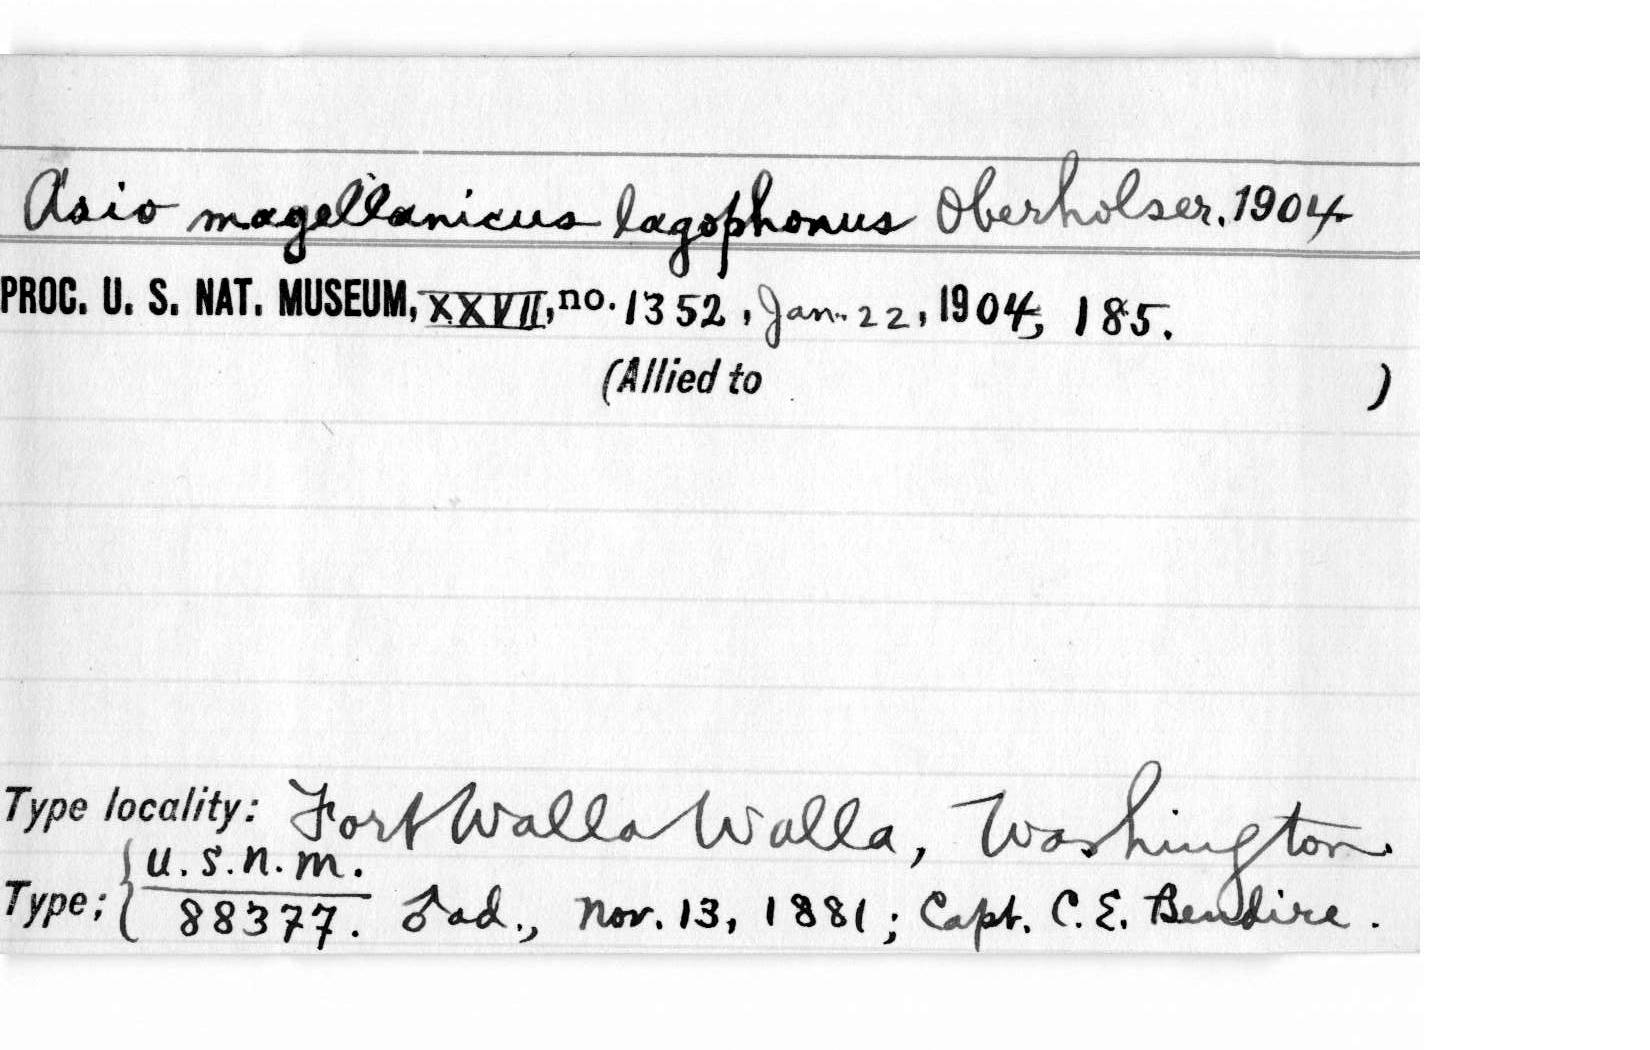 Asio magellanicus lagophonus Oberholser, 1904
PROC. U. S. NAT. MUSEUM, XXVII, no. 1352, Jan. 22, 1904, 185.
(Allied to )
Type locality: Fort Walla Walla, Washington.
U.S.N.M.
Type; 88377. ♂ ad., Nov. 13, 1881; Capt. C. E. Bendire.